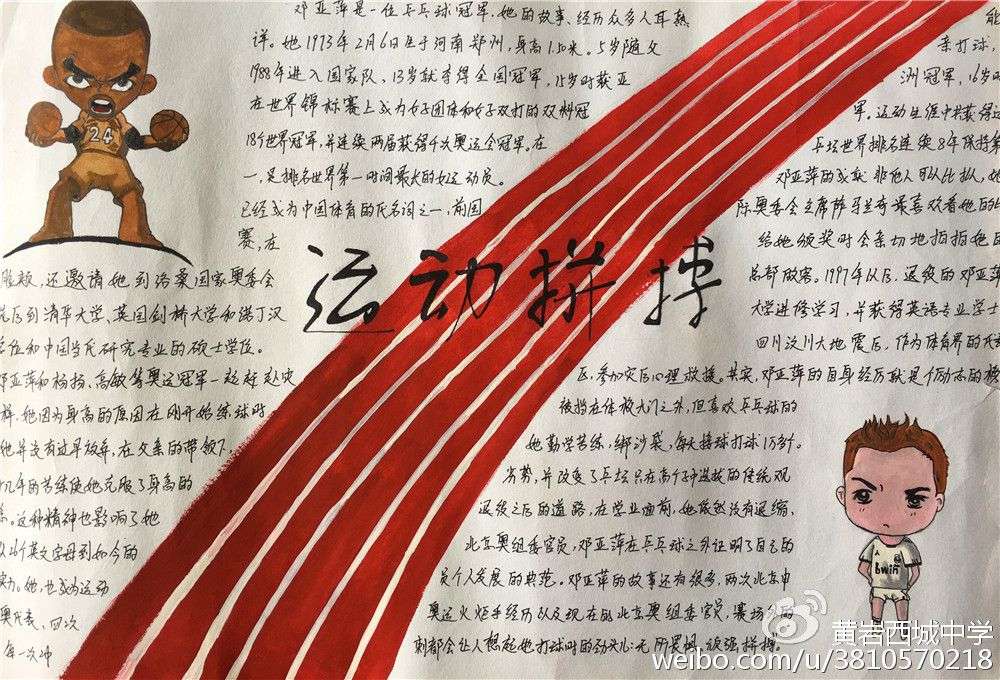 邓亚萍是一位乒乓球冠军,她的故事、经历众多人耳熟能
详。她1973年2月6日生于河南郑州,身高1.5米。5岁随父亲打球,
1988年进入国家队,13岁就夺得全国冠军,15岁时获亚洲冠军,16岁时
在世界锦标赛上成为女子团体和女子双打的双料冠军。运动生涯中共获得过
18个世界冠军,并连续两届获得4次奥运会冠军。在乒坛世界排名连续8年保持第
一,是排名世界第一时间最长的女运动员。邓亚萍的成就非他人可以比拟,她
已经成为中国体育的代名词之一,前国际奥委会主席萨马兰奇最喜欢看她的比
赛,在给她颁奖时会亲切地拍拍她的
24
运动拼搏
脸颊,还邀请她到洛桑国家奥委会总部做客。1997年以后,退役的邓亚萍
先后到清华大学、英国剑桥大学和诺丁汉大学进修学习,并获得英语专业学士
学位和中国当代研究专业的硕士学位。四川汶川大地震后,作为体育界的代表
邓亚萍和杨扬、高敏等奥运冠军一起赶赴灾区,参加灾后心理救援。其实,邓亚萍的自身经历就是个励志的榜
样,她因为身高的原因在刚开始练球时,被挡在体校大门之外,但喜欢乒乓球的
她并没有过早放弃,在父亲的带领下,她勤学苦练,绑沙袋,每天接球打球1万多个。
十几年的苦练使她克服了身高的劣势,并改变了乒坛只在高个子中选拔的传统观
念。这种精神也影响了她退役之后的道路,在学业面前,她依然没有退缩,
从26个英文字母到如今的北京奥组委官员,邓亚萍在乒乓球之外证明了自己的
实力。她,也成为运动员个人发展的典范。邓亚萍的故事还有很多,两次北京申
奥代表、四次奥运火炬手经历以及现在的北京奥组委官员,赛场外的
每一次冲刺都会让人想起她打球时的劲头儿:无所畏惧,顽强拼搏。
bwin
黄岩西城中学
weibo.com/u/3810570218